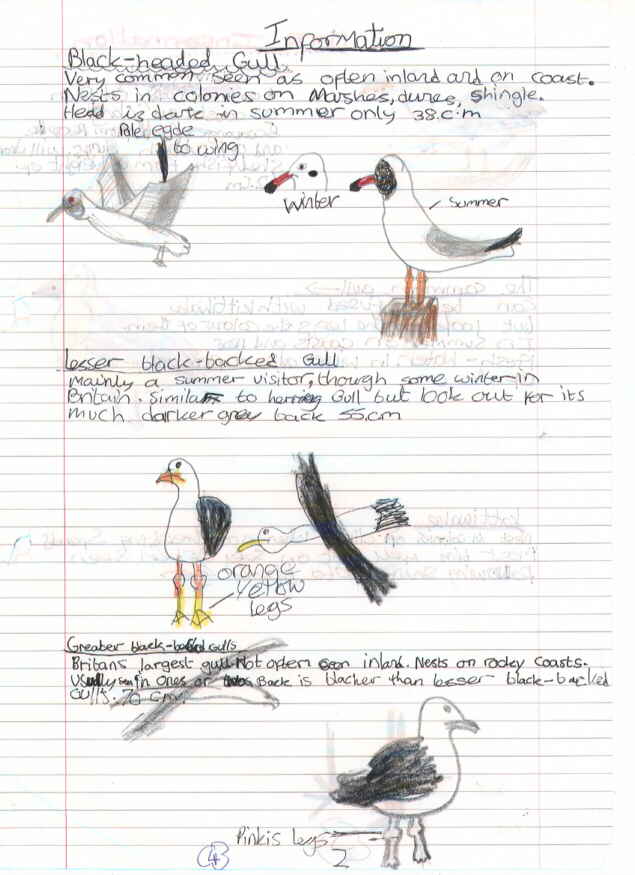 Information
Black-headed Gull
Very common seen as often inland and on coast.
Nests in colonies on Marshes, dunes, shingle.
Head is dark in summer only 38.c.m
Pale egde
to wing
winter
summer
Lesser black-backed Gull
Mainly a summer visitor, though some winter in
Britain. Similar to herring Gull but look out for its
much darker grey back 55.cm
orange
yellow
legs
Greater black-backed Gulls
Britans largest gull. Not often seen inland. Nests on rocky coasts.
Usually seen in ones or twos Back is blacker than lesser black-backed
Gulls. 70 cm.
Pinkis legs
2